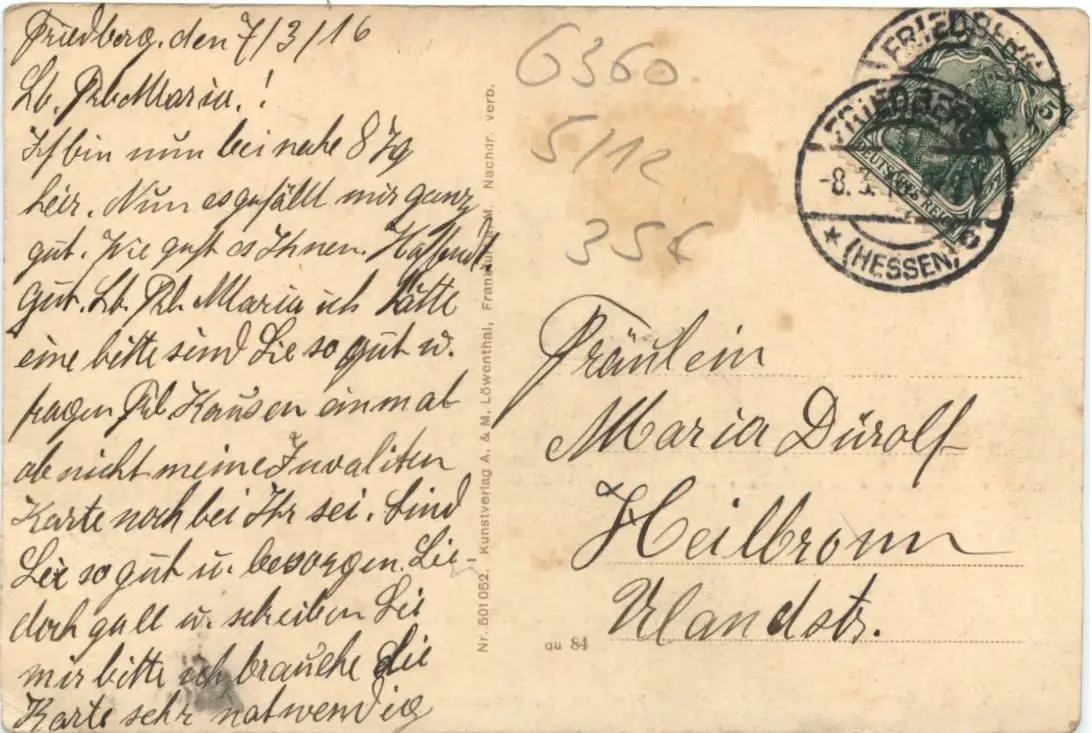 Friedberg. den 7/3/16
Lb. Frl. Maria.!
Ich bin nun bei nahe 8 Tg
heir. Nun es gefällt mir ganz
gut. Wie geht es Ihnen. Hoffendl.
gut. Lb. Frl. Maria ich hätte
eine bitte sind Sie so gut u.
fragen Frl. Kausen einmal
ob nicht meine Invaliten
Karte noch bei Ihr sei. Sind
Sie so gut u. besorgen Sie
doch u. schreiben Sie
mir bitte ich brauche die
Karte sehr notwendig
Nr. 501 052. Kunstverlag A. & M. Löwenthal, Frankfurt a. M. Nachdr. verb.
6360
5/12
35€
FRIEDBERG
FRIEDBERG
-8.3.
* (HESSEN)
DEUTSCHES REICH
5
Fräulein
Maria Dürolf
Heilbronn
Ulandstr.
qu 84